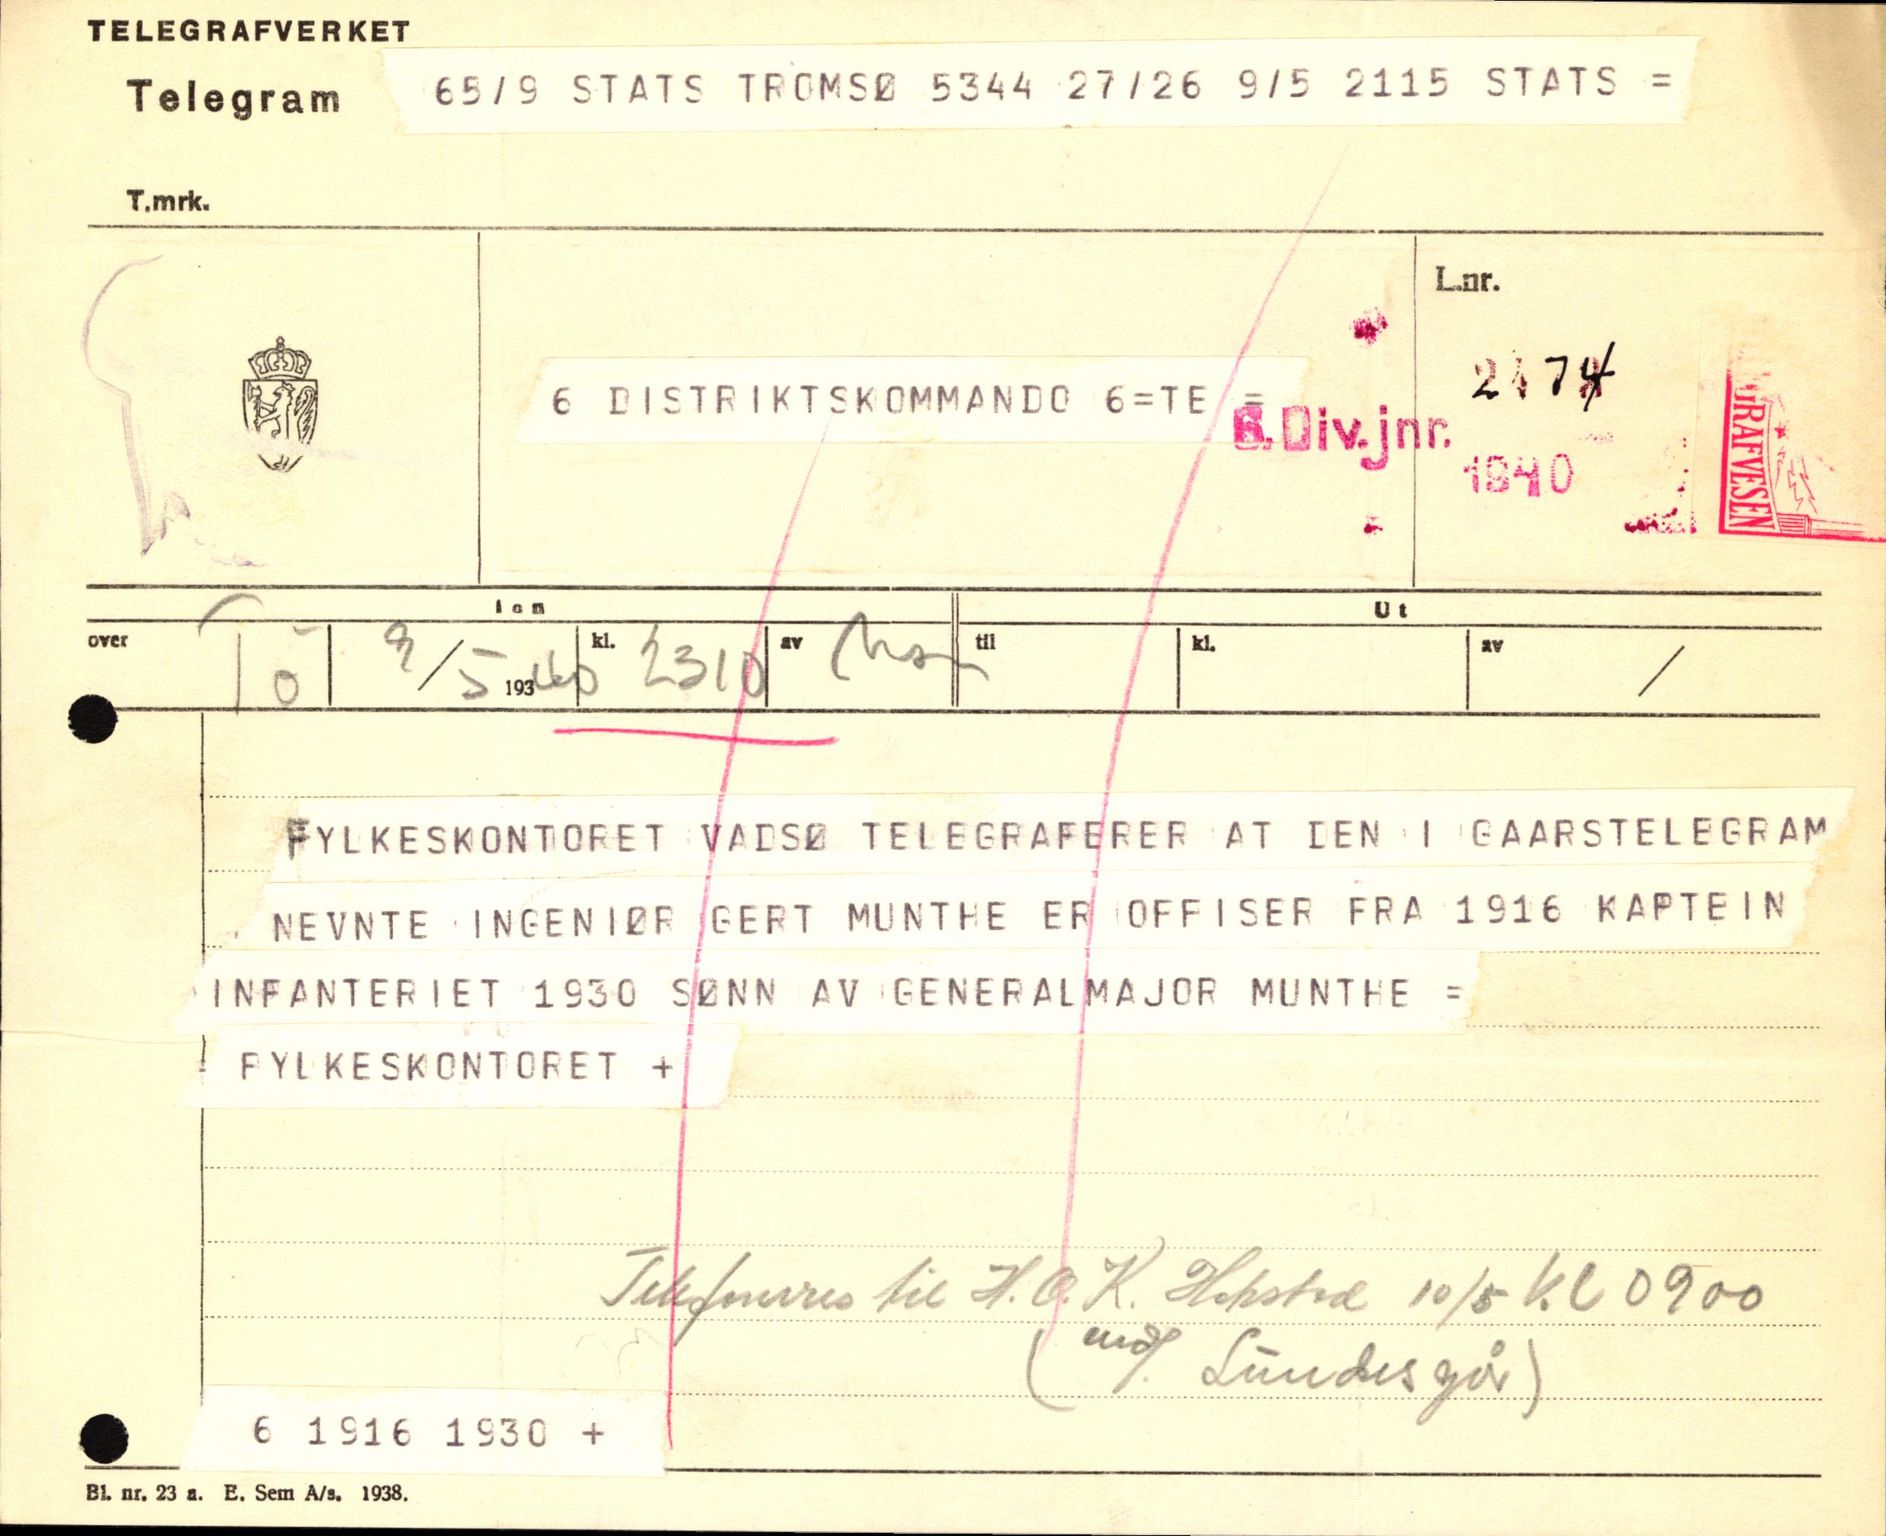 TELEGRAFVERKET
Telegram
65/9 STATS TROMSØ 5344 27/26 9/5 2115 STATS =
T.mrk.
L.nr.
2474
6 DISTRIKTSKOMMANDO 6=TE =
6. Div. jnr.
1940
GRAFVESEN
Inn
Ut
over Tö 9/5 1940 kl. 2310 av
til kl. av /
FYLKESKONTORET VADSØ TELEGRAFERER AT DEN I GAARSTELEGRAM
NEVNTE INGENIØR GERT MUNTHE ER OFFISER FRA 1916 KAPTEIN
INFANTERIET 1930 SØNN AV GENERALMAJOR MUNTHE =
FYLKESKONTORET +
Telefoneres til H.O.K. 10/5 Kl 0900
( Lundesgår)
6 1916 1930 +
Bl. nr. 23 a. E. Sem A/s. 1938.